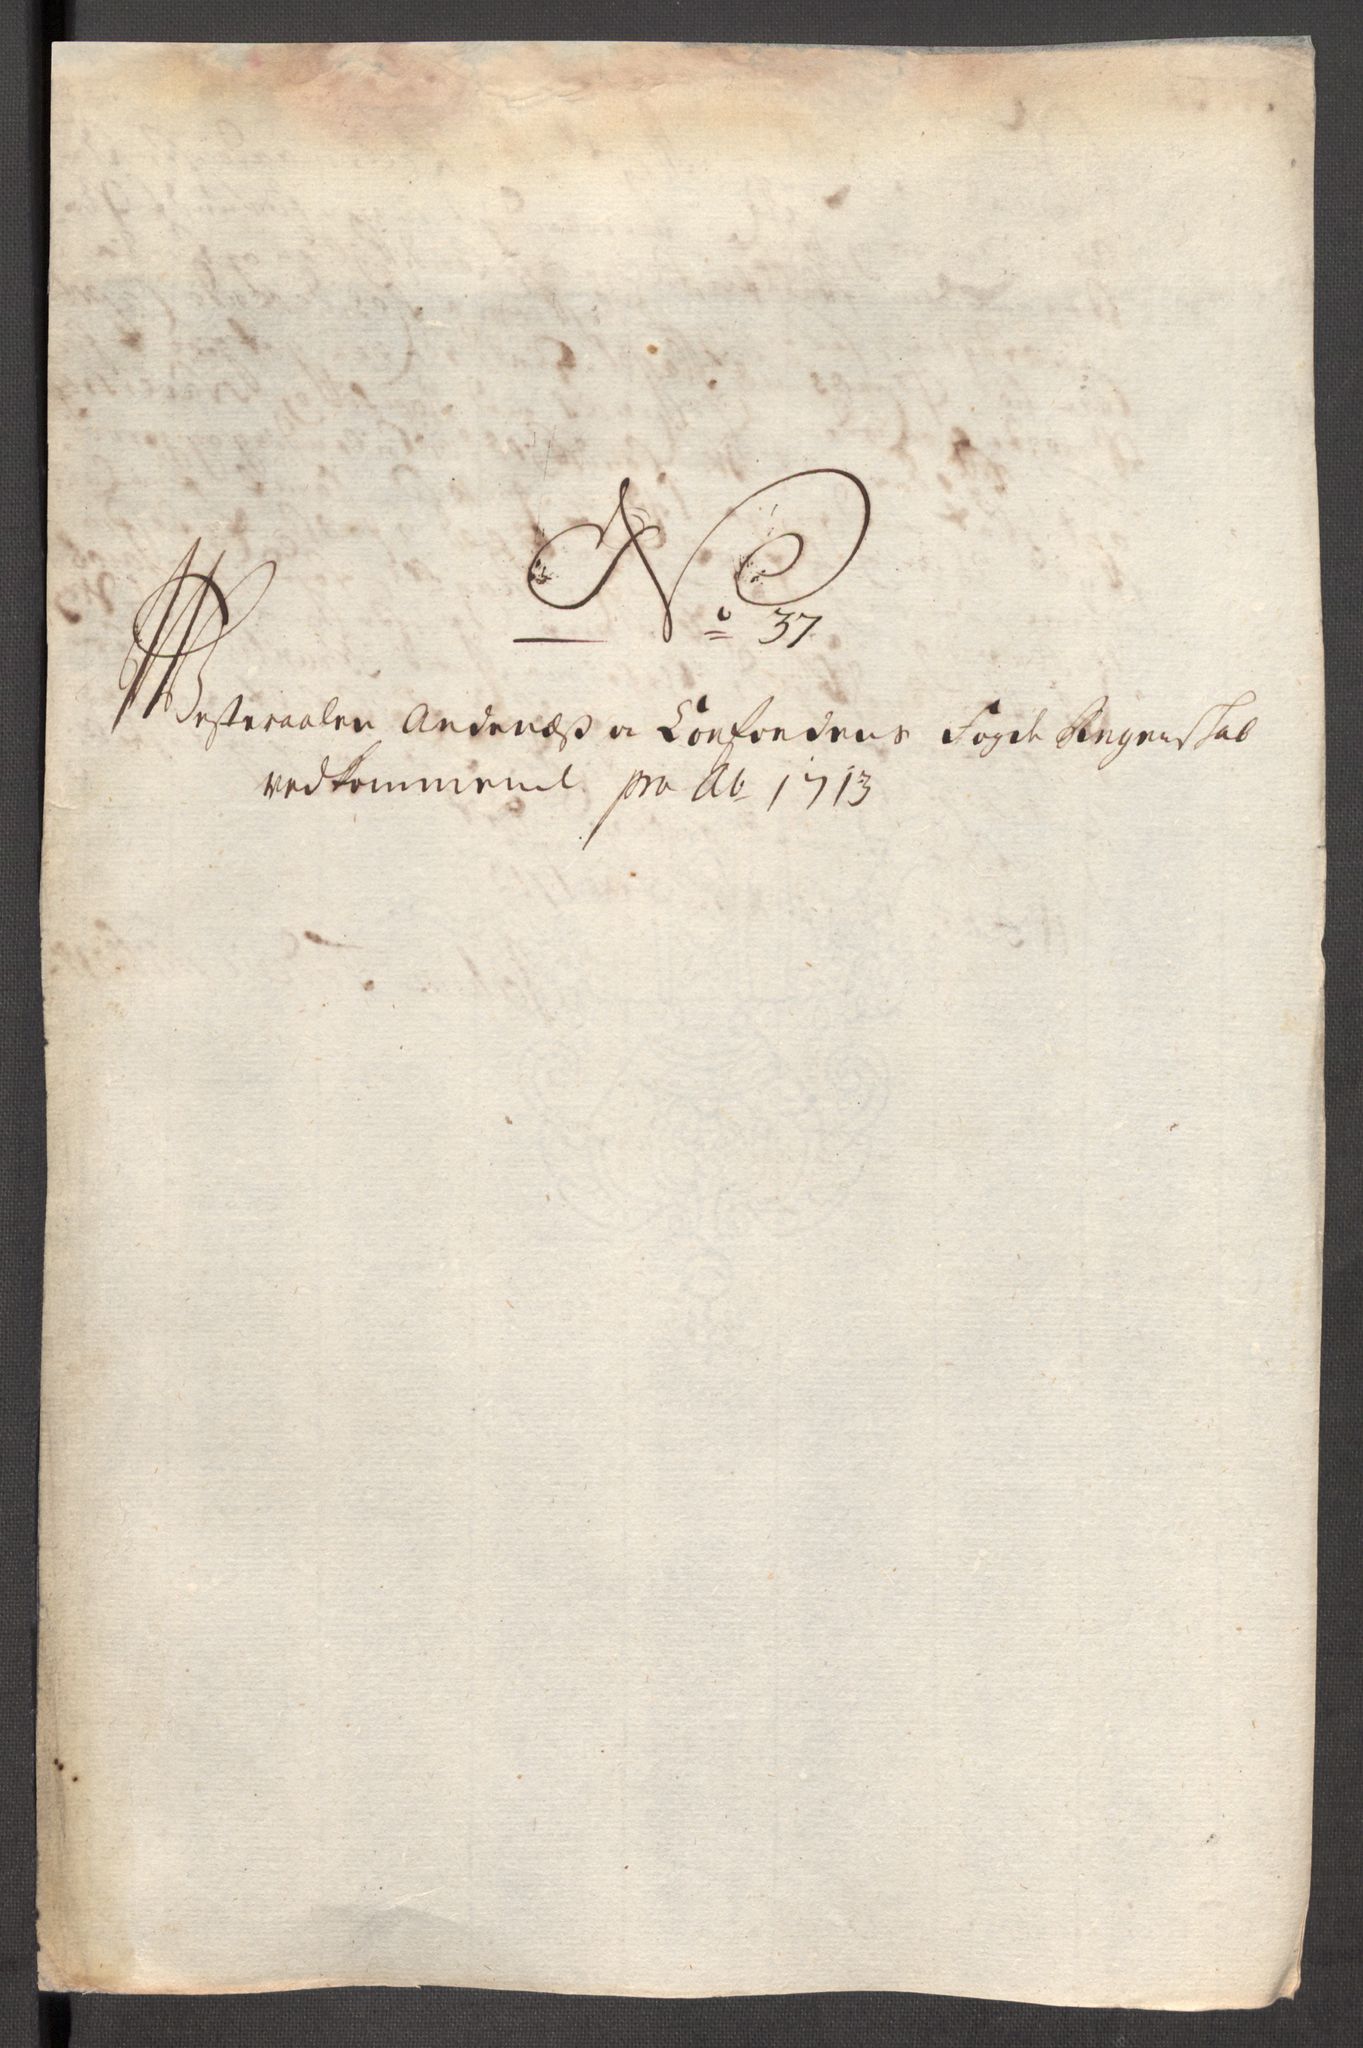 No 37
Westeraalen Andenæs oc Loefoedens Fogde Regenskab
vedkommend pro Ao 1713